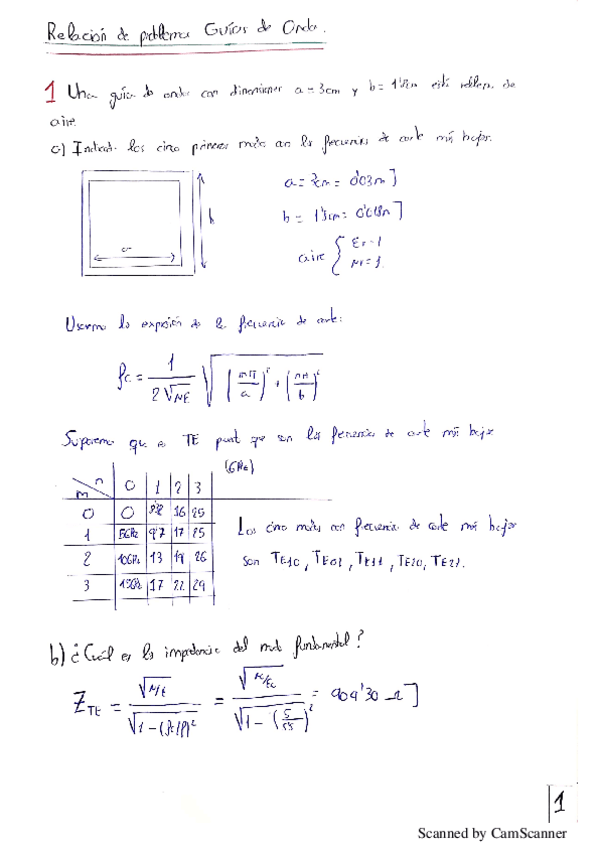 Relación de problemas Guías de Onda.
1 Una guía de onda con dimensiones a = 3cm y b = 1'8cm está rellena de
aire.
a) Indicar los cinco primeros modos con las frecuencias de corte más bajas.
a = 3cm = 0'03m]
b = 1'8cm = 0'018m]
b
a
aire { Er = 1
Mr = 1.
Usamos la expresión de la frecuencia de corte:
fc = 1 / 2√ME √ (mπ/a)² + (nπ/b)²
Suponemos que es TE puesto que son las frecuencias de corte más bajas
(GHz)
m \ n 0 1 2 3
0 0 16 25
1 5GHz 9'7 17 25
2 10GHz 13 19 26
3 15GHz 17 22 29
Los cinco modos con frecuencia de corte más bajas
son TE10, TE01, TE11, TE20, TE21.
b) ¿Cuál es la impedancia del modo fundamental?
Z TE = √M/E / √1 - (fc/f)² = / √1 - (5/5'5)² = 904'30 Ω]
1
Scanned by CamScanner